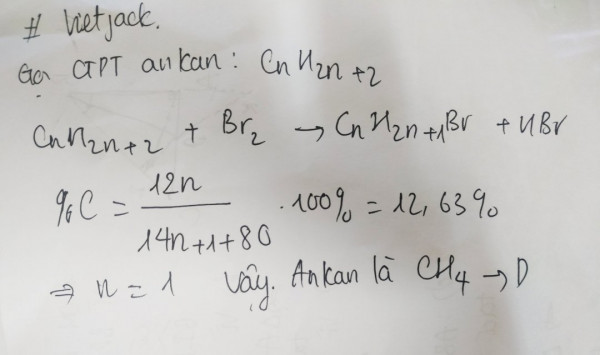 # Vietjack.
Gọi CTPT ankan: CnH2n+2
CnH2n+2 + Br2 → CnH2n+1Br + HBr
%C = 12n / 14n+1+80 . 100% = 12,63%
⇒ n = 1 Vậy. Ankan là CH4 → D